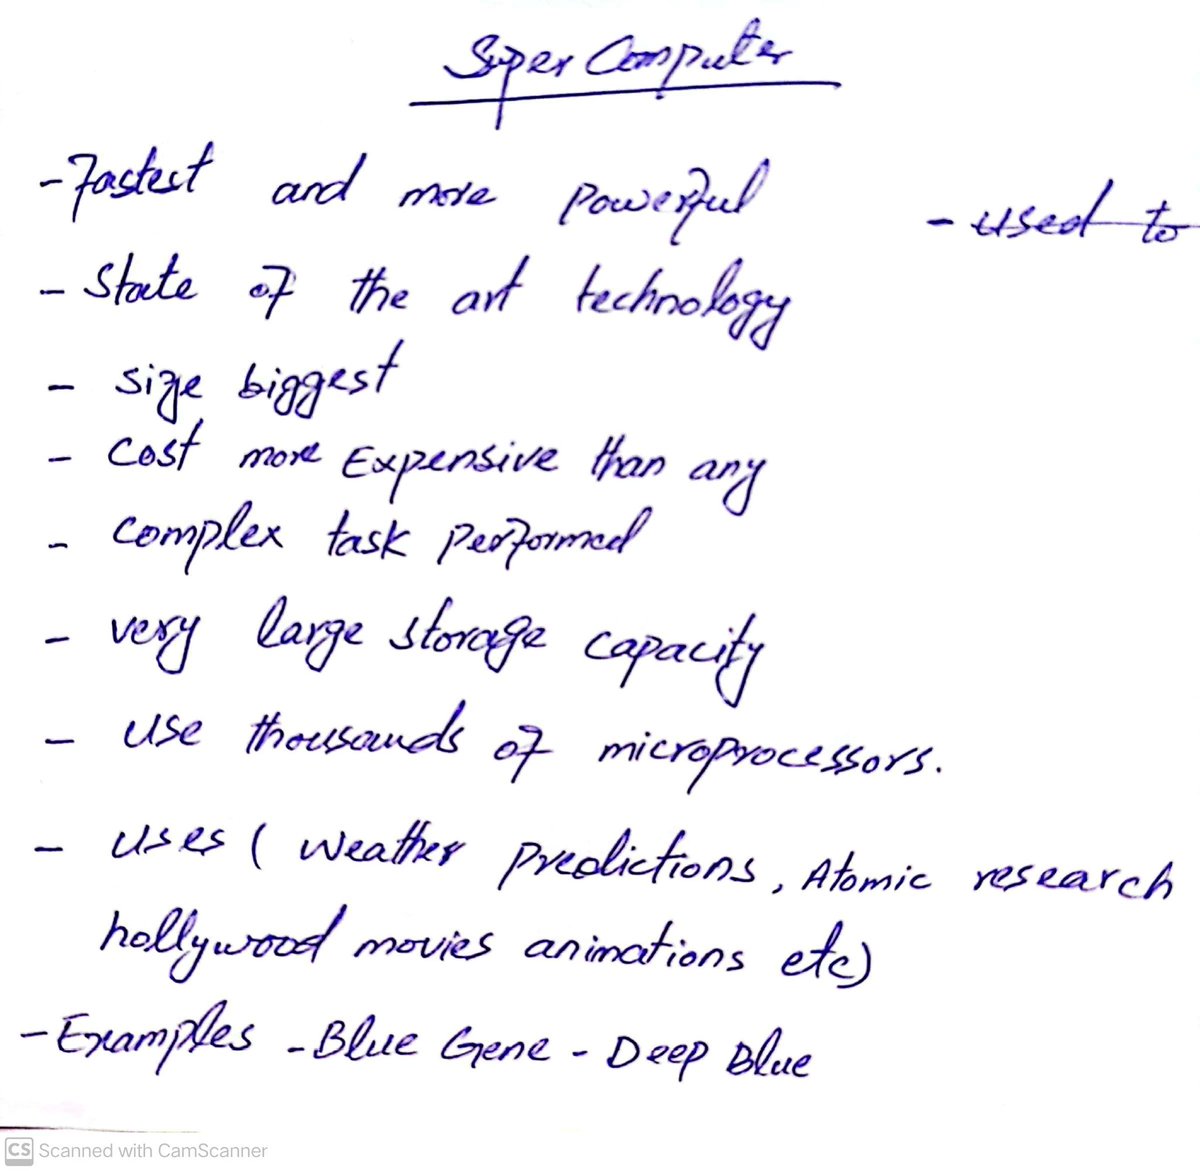 Super Computer
- Fastest and more powerful
- used to
- State of the art technology
- size biggest
- cost more Expensive than any
- complex task performed
- very large storage capacity
- use thousands of microprocessors.
- uses ( Weather predictions, Atomic research
hollywood movies animations etc)
- Examples - Blue Gene - Deep Blue
CS Scanned with CamScanner